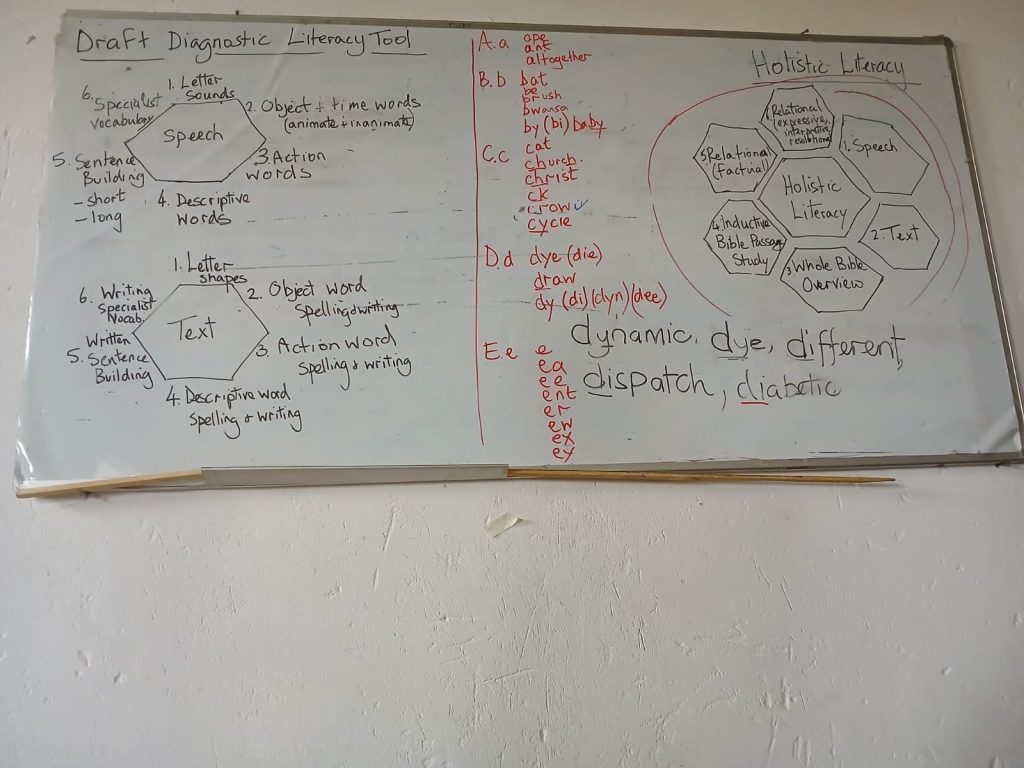 Draft Diagnostic Literacy Tool
1. Letter
Sounds
2. Object + time words
(animate + inanimate)
3. Action
words
4. Descriptive
words
5. Sentence
Building
- short
- long
6.
Specialist
Speech
1. Letter
shapes
2. Object word
Spelling & writing
3. Action word
Spelling & writing
4. Descriptive word
Spelling & writing
Written
5. Sentence
Building
6. Writing
Specialist
Vocab
Text
A.a ape
ant
altogether
B.b bat
be
brush
bwansa
by (bi) baby
C.c cat
church.
christ
ck
crow
cycle
D.d dye (die)
draw
dy (di) (dyn) (dee)
E.e e
ea
ee
ent
er
ew
ex
ey
Holistic Literacy
Relational
(expressive,
1. Speech
2. Text
3. Whole Bible
Overview
4. Inductive
Bible Passage
Study
5. Relational
(factual)
Holistic
Literacy
dynamic, dye, different,
dispatch, diabetic